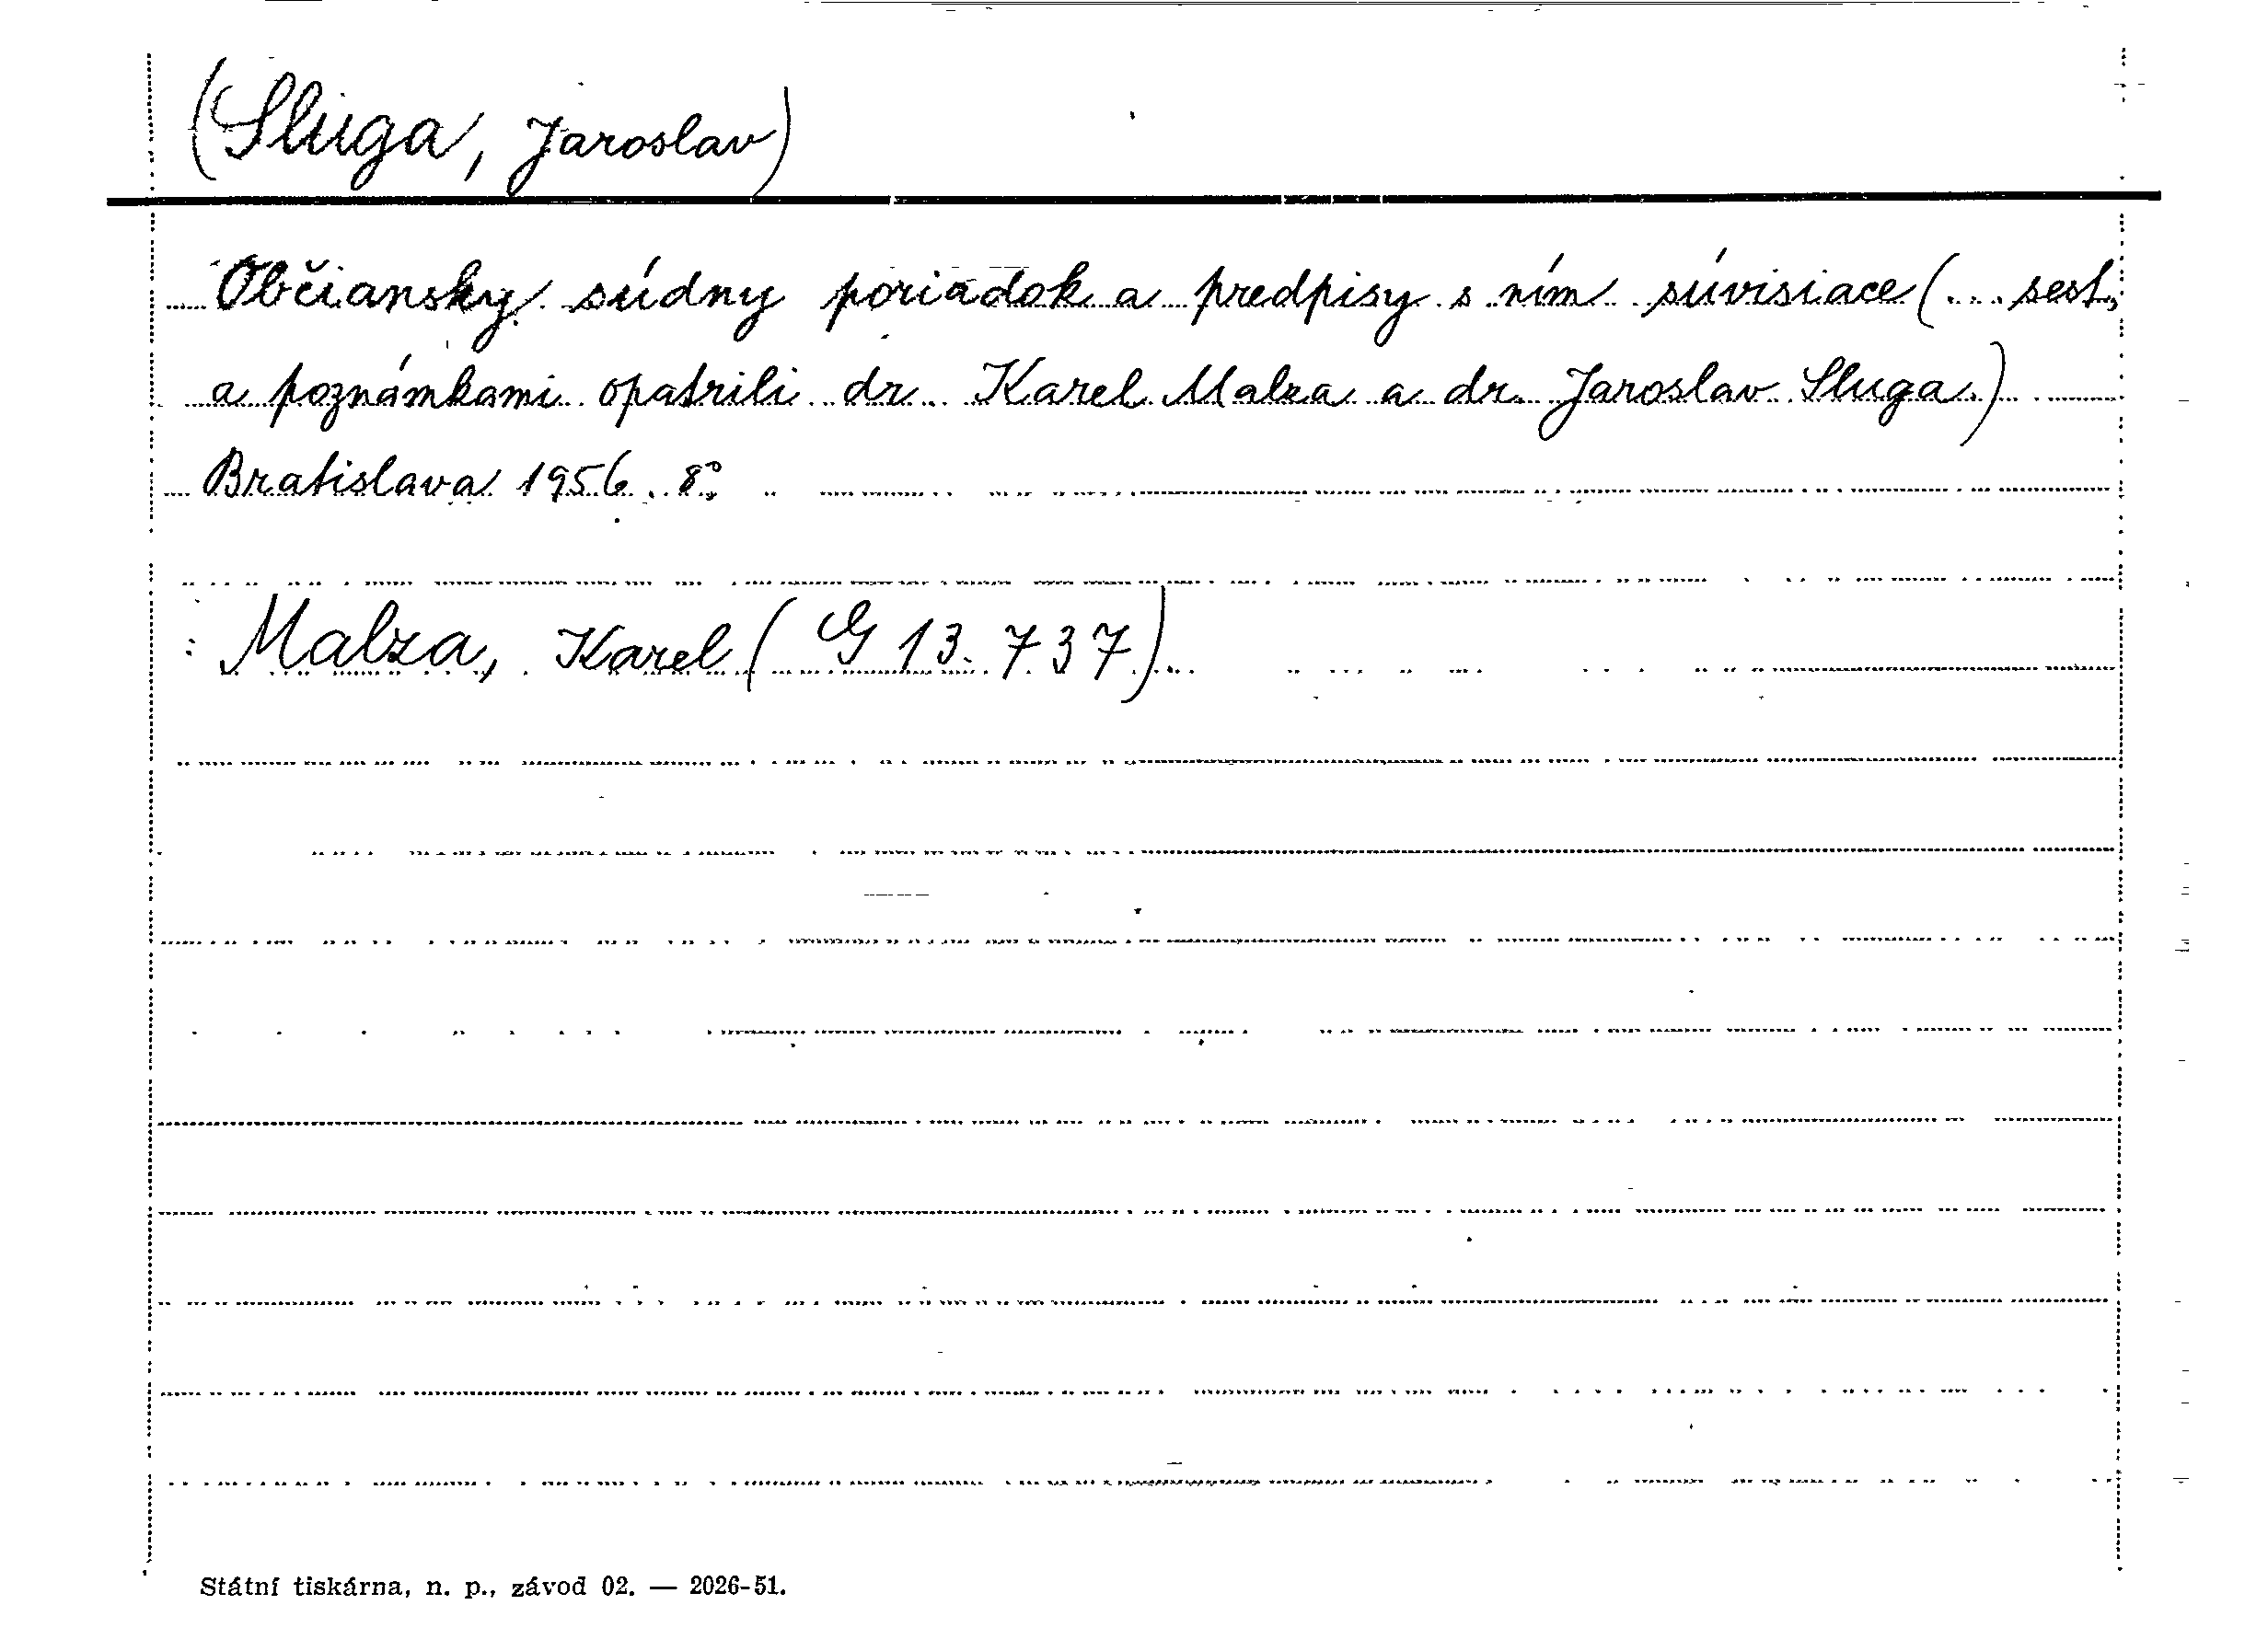 (Sluga, Jaroslav)
Občiansky súdny poriadok a predpisy s ním súvisiace (... sest.
a poznámkami opatrili dr. Karel Malza a dr. Jaroslav Sluga.)
Bratislava 1956. 8°.
: Malza, Karel (G 13.737)
Státní tiskárna, n. p., závod 02. — 2026-51.